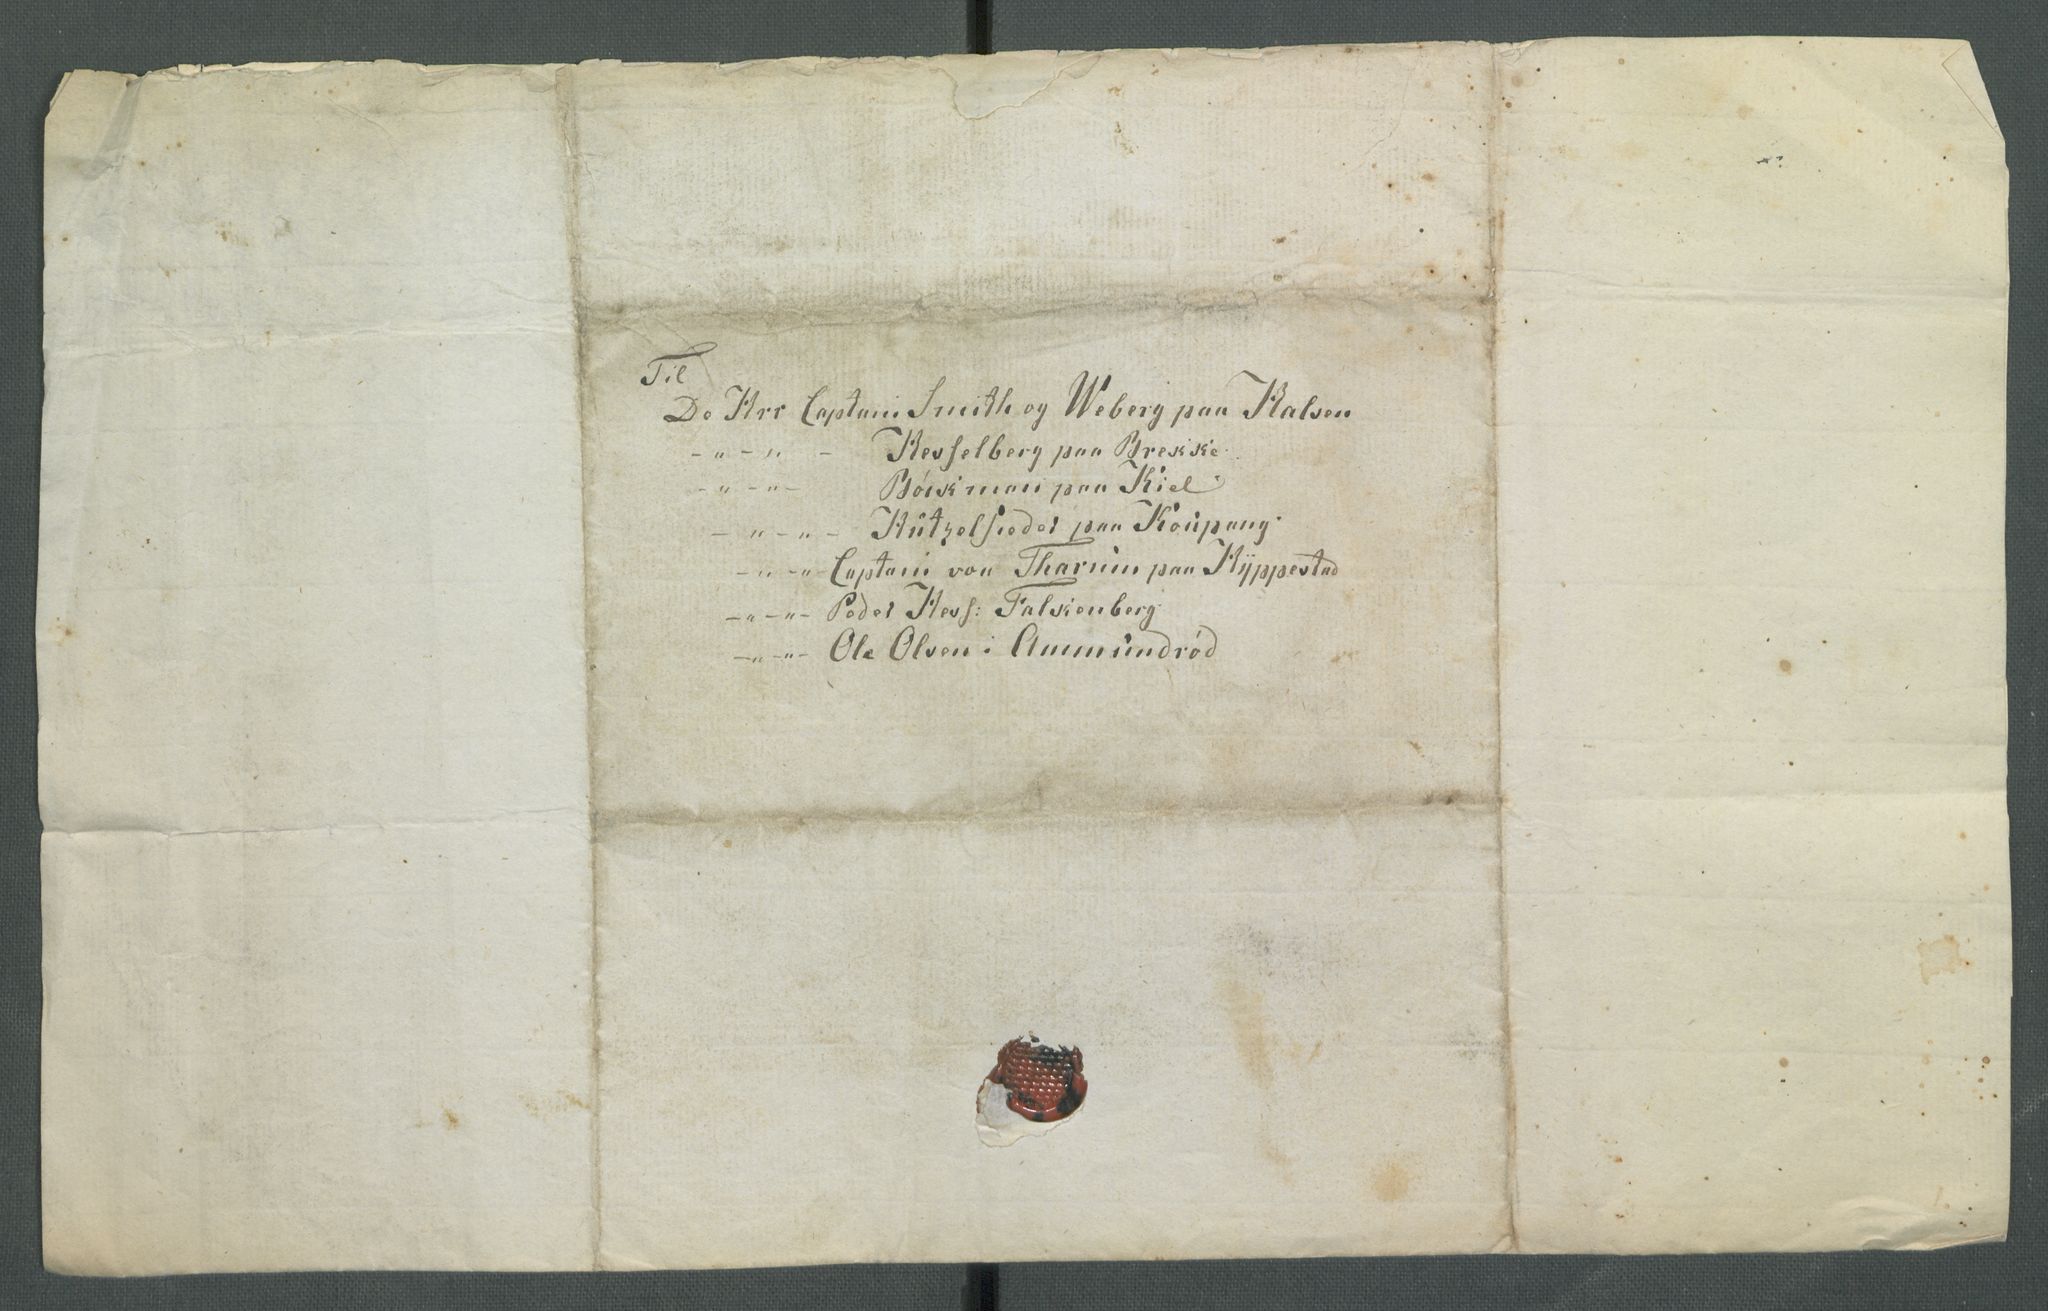 Til
De Hrr Captain Smith og Weberg paa Halsen
- " - " - Kesselberg paa Brekke
- " - " - Böckman paa Kiel
- " - " - Kützelsieder paa Koupang
- " - " - Captain von Tharum paa Kÿppestad
- " - " - Peder Falkenberg
- " - " - Ole Olsen i Ammundröd